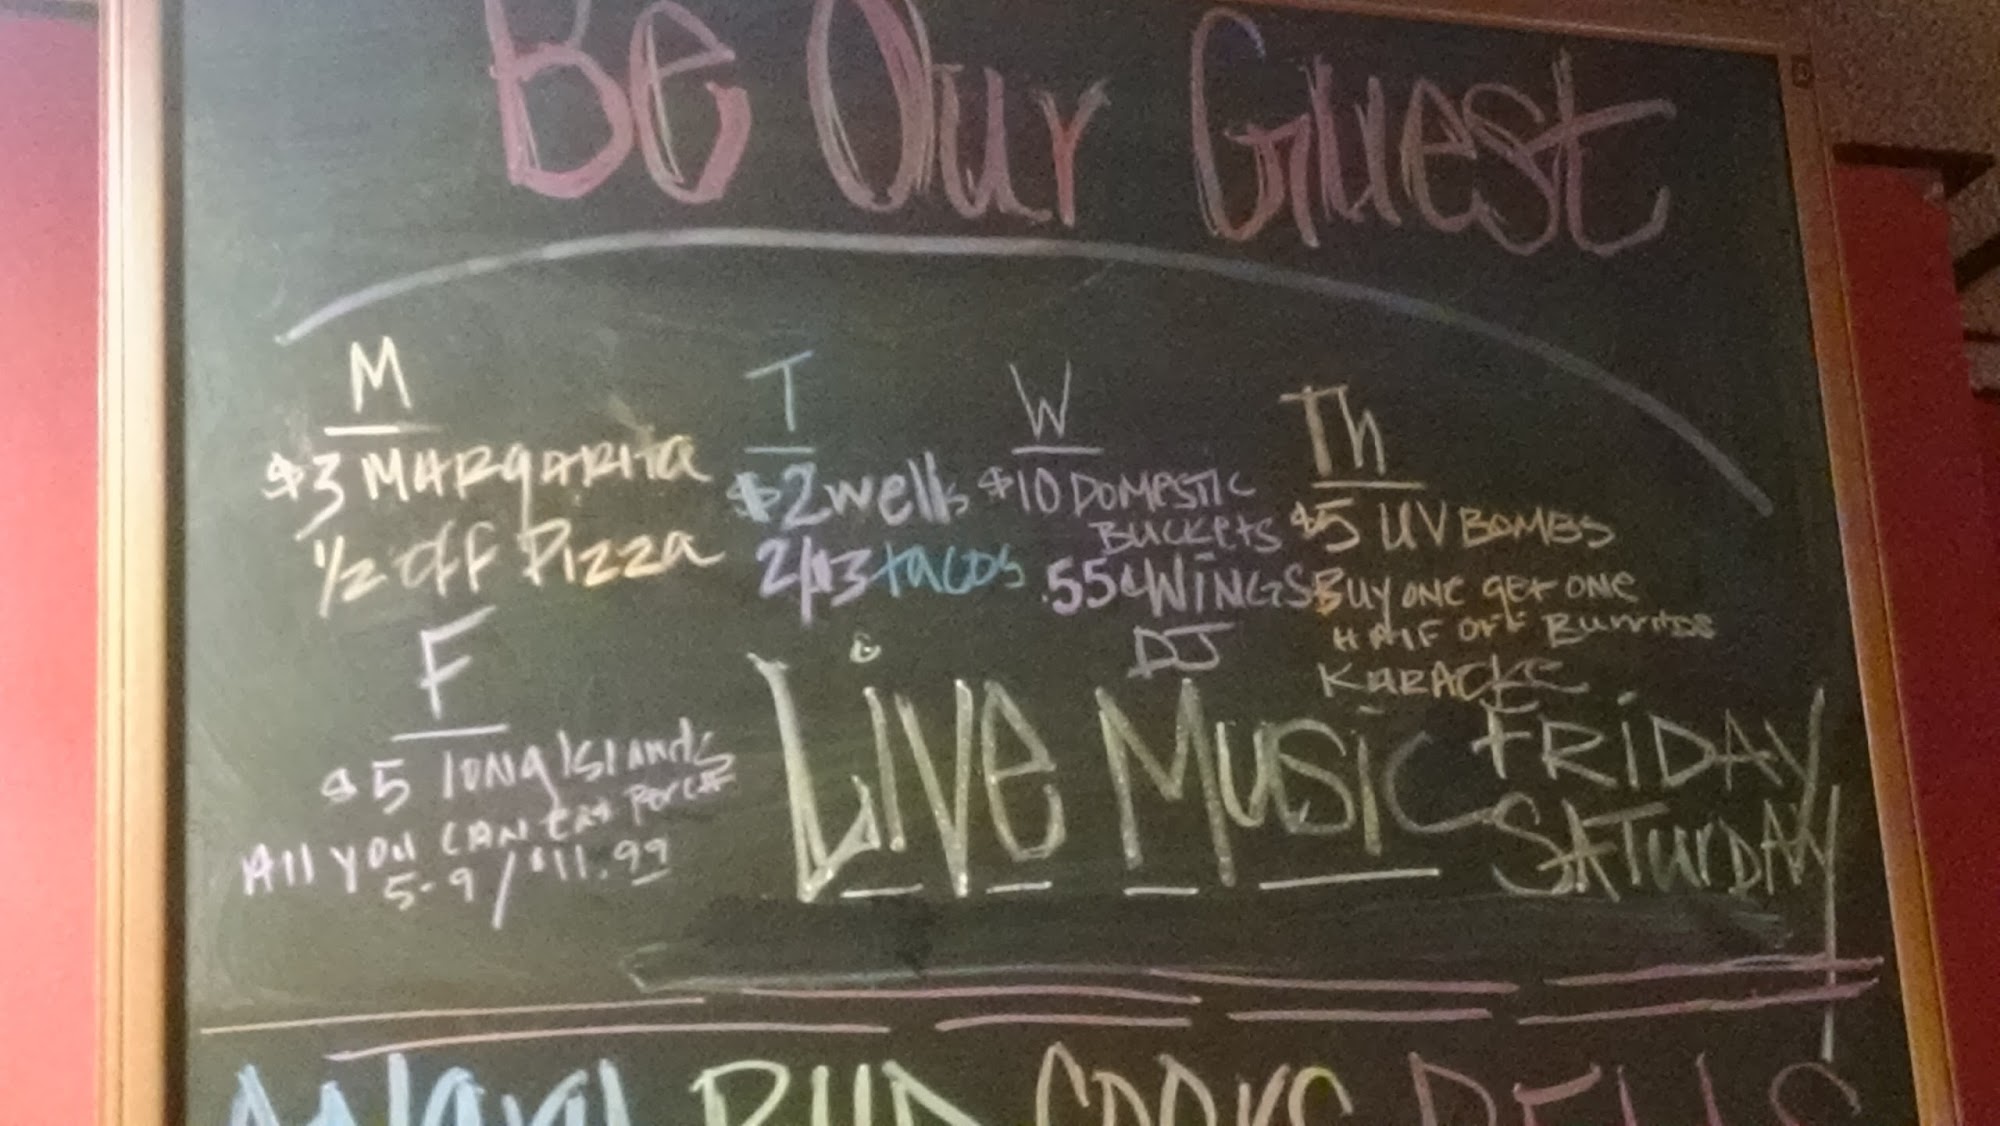 Be Our Guest
M
$3 MARgARita
1/2 off Pizza
T
$2 wells
2/$3 tacos
W
$10 DOMESTIC
BUCKETS
.55¢ WINGS
DJ
Th
$5 UV BOMBS
BUY ONE get ONE
HAlF OFF Burritos
KARAOKE
F
$5 long Islands
All you CAN EAt Perch
5-9 / $11.99
LiVe Music
FRiDAY
SATurDAY